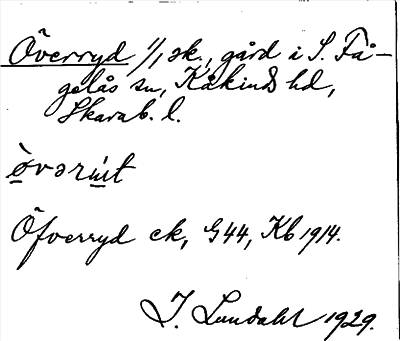 Överryd 1/1 sk., gård i S. Få-
gelås sn, Kåkinds hd,
Skarab. l.
Öfverryd ek, G44, Kb 1914.
I. Lundahl 1929.